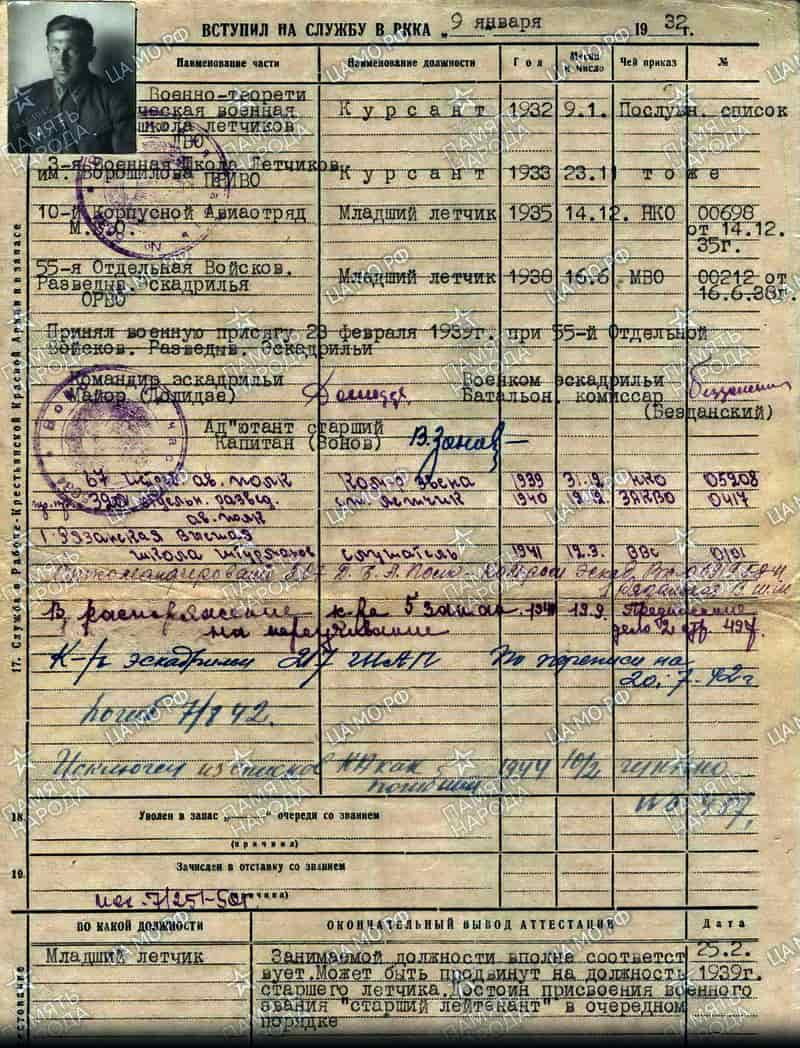 ВСТУПИЛ НА СЛУЖБУ В РККА „ 9 января 19 32 г.
Наименование части Наименование должности Год Месяц и число Чей приказ №
Военно-теорети
ческая военная Курсант 1932 9.1. Послужн. список
школа летчиков
3-я Военная Школа Летчиков
им. Ворошилова ПРИВО Курсант 1933 23.11 то же
10-й Корпусной Авиаотряд Младший летчик 1935 14.12. НКО 00698
М.В.О. от 14.12.
35г.
55-я Отдельная Войсков. Младший летчик 1938 16.6 МВО 00212 от
Разведыв. Эскадрилья 16.6.38г.
ОРВО
Принял военную присягу 23 февраля 1939г. при 55-й Отдельной
Войсков. Разведыв. Эскадрильи
Командир эскадрильи Военком эскадрильи
Майор (Долидзе) Батальон. комиссар
(Безданский)
Ад"ютант старший
Капитан (Зонов) В.Зонов
67 ав. полк Ком-р звена 1939 31.12. НКО 05208
отдельн. развед. ст. летчик 1940 19.12. ЗАКВО 0417
ав. полк
1 Рязанская высшая
школа штурманов слушатель 1941 12.3. ВВС 0101
В распоряжение 5 запас. 19.9. Предписание
дело 2 стр. 497.
К-р эскадрильи 217 По переписи на
20.7.42г
Погиб 7/8 42.
Исключен из списков КА как 1944 10/2 гупкнко
погибший № 0
17. Служба в Рабоче-Крестьянской Красной Армии и в запасе
18. Уволен в запас „___“ очереди со званием
(причина)
19. Зачислен в отставку со званием
7/251-50г.
ПО КАКОЙ ДОЛЖНОСТИ ОКОНЧАТЕЛЬНЫЙ ВЫВОД АТТЕСТАЦИИ Дата
Младший летчик Занимаемой должности вполне соответст 25.2.
вует.Может быть продвинут на должность 1939г.
старшего летчика.Достоин присвоения военного
звания "старший лейтенант" в очередном
порядке
ПАМЯТЬ НАРОДА
ЦАМО.РФ